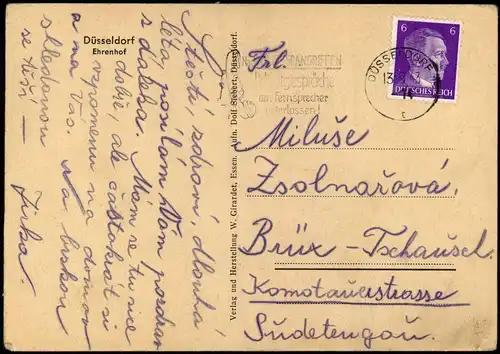 Düsseldorf
Ehrenhof
Štěstí, zdraví, dlouhá
léta, posílám Vám pozdrav
z daleka. Mám se tu sice
dobře, ale častokrát si
vzpomenu na domov
a na Vás. Na brzkou
shledanou
se těší —
Jirka.
Verlag und Herstellung W. Girardet, Essen. Aufn. Dolf Siebert, Düsseldorf.
Ferngespräche
am Fernsprecher
unterlassen!
DÜSSELDORF
13
6 6
DEUTSCHES REICH
Frl.
Miluše
Zsolnařová,
Brüx - Tschausel.
Komotauerstrasse
Sudetengau.